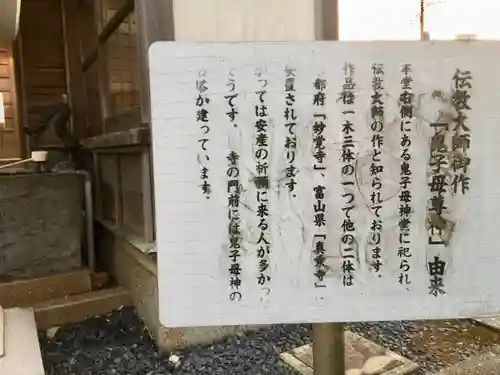 伝教大師御作
「鬼子母尊神」由来
本堂右側にある鬼子母神堂に祀られ、
伝教大師の作と知られております。
作品は一木三体の一つで他の二体は
都府「妙覚寺」、富山県「真乗寺」に
安置されております。
かつては安産の祈願に来る人が多かった
そうです。寺の門前には鬼子母神の
石塔が建っています。